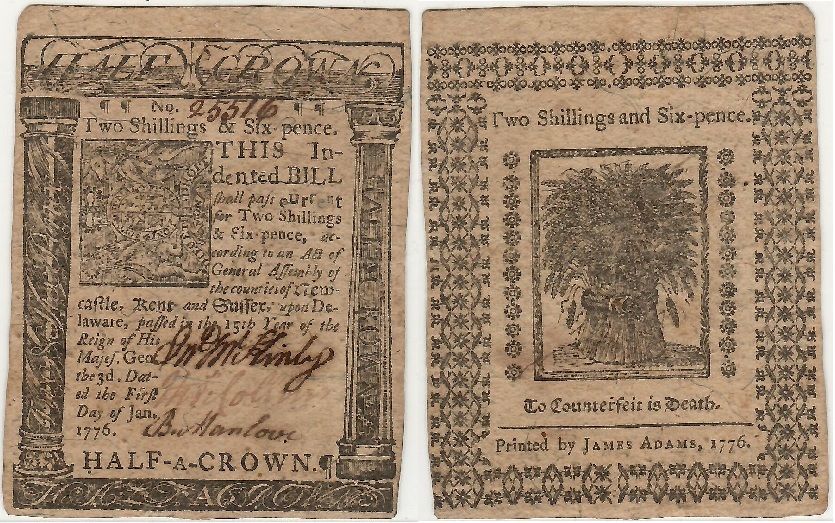 HALF CROWN
No. 25516
Two Shillings & Six-pence.
THIS In-
dented BILL
shall pass current
for Two Shillings
& Six-pence, ac-
cording to an Act of
General Assembly of
the counties of New-
castle, Kent and Sussex, upon De-
laware, passed in the 15th Year of the
Reign of His
Majes. Geo.
the 3d. Dat-
ed the First
Day of Jan.
1776.
Jno McKinly
Bo Manlove
HALF-A-CROWN.
Two Shillings and Six-pence.
To Counterfeit is Death.
Printed by JAMES ADAMS, 1776.